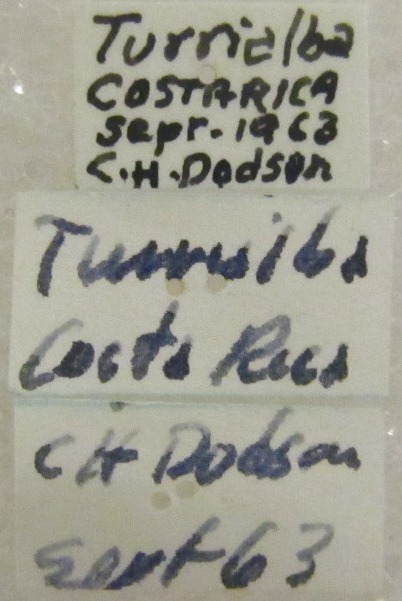 Turrialba
COSTA RICA
Sept. 1963
C.H. Dodson
Turrialba
Costa Rica
CH Dodson
Sept 63